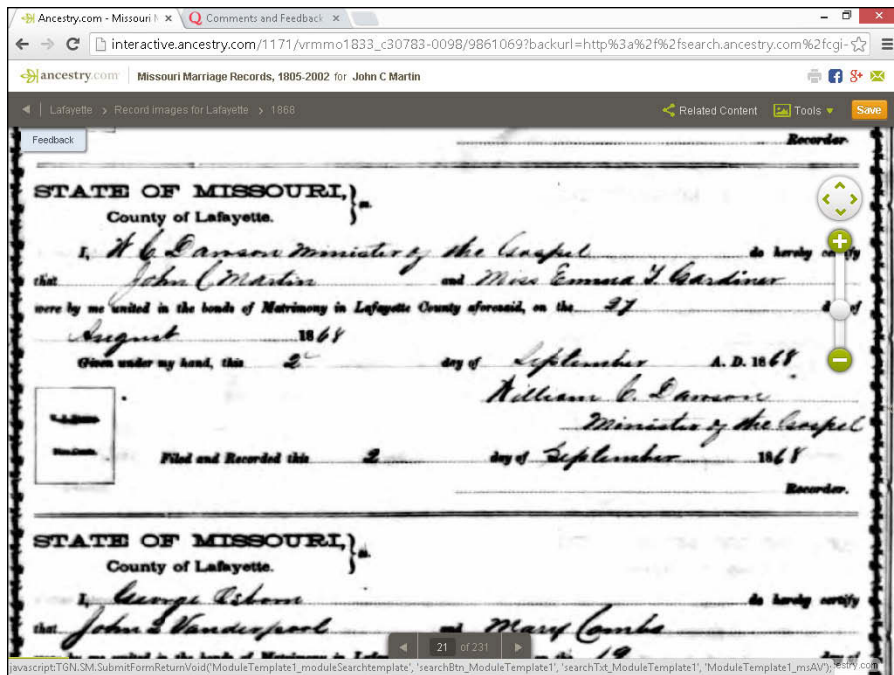 Ancestry.com - Missouri M
Comments and Feedback
interactive.ancestry.com/1171/vrmmo1833_c30783-0098/9861069?backurl=http%3a%2f%2fsearch.ancestry.com%2fcgi-
ancestry.com Missouri Marriage Records, 1805-2002 for John C Martin
Lafayette > Record images for Lafayette > 1868 Related Content Tools Save
Feedback
Recorder.
STATE OF MISSOURI, } ss.
County of Lafayette.
I, W C Dawson Minister of the Gospel do hereby certify
that John C Martin and Miss Emma F. Gardiner
were by me united in the bonds of Matrimony in Lafayette County aforesaid, on the 27 day of
August 1868
Given under my hand, this 2 day of September A. D. 1868
William C. Dawson
Minister of the Gospel
Filed and Recorded this 2 day of September 1868
Recorder.
STATE OF MISSOURI, } ss.
County of Lafayette.
I, George Osborn do hereby certify
that John S Vanderpool and Mary Combs
were by me united in the bonds of Matrimony in Lafayette 19 day of
21 of 231
javascript:TGN.SM.SubmitFormReturnVoid('ModuleTemplate1_moduleSearchtemplate', 'searchBtn_ModuleTemplate1', 'searchTxt_ModuleTemplate1', 'ModuleTemplate1_msAV');